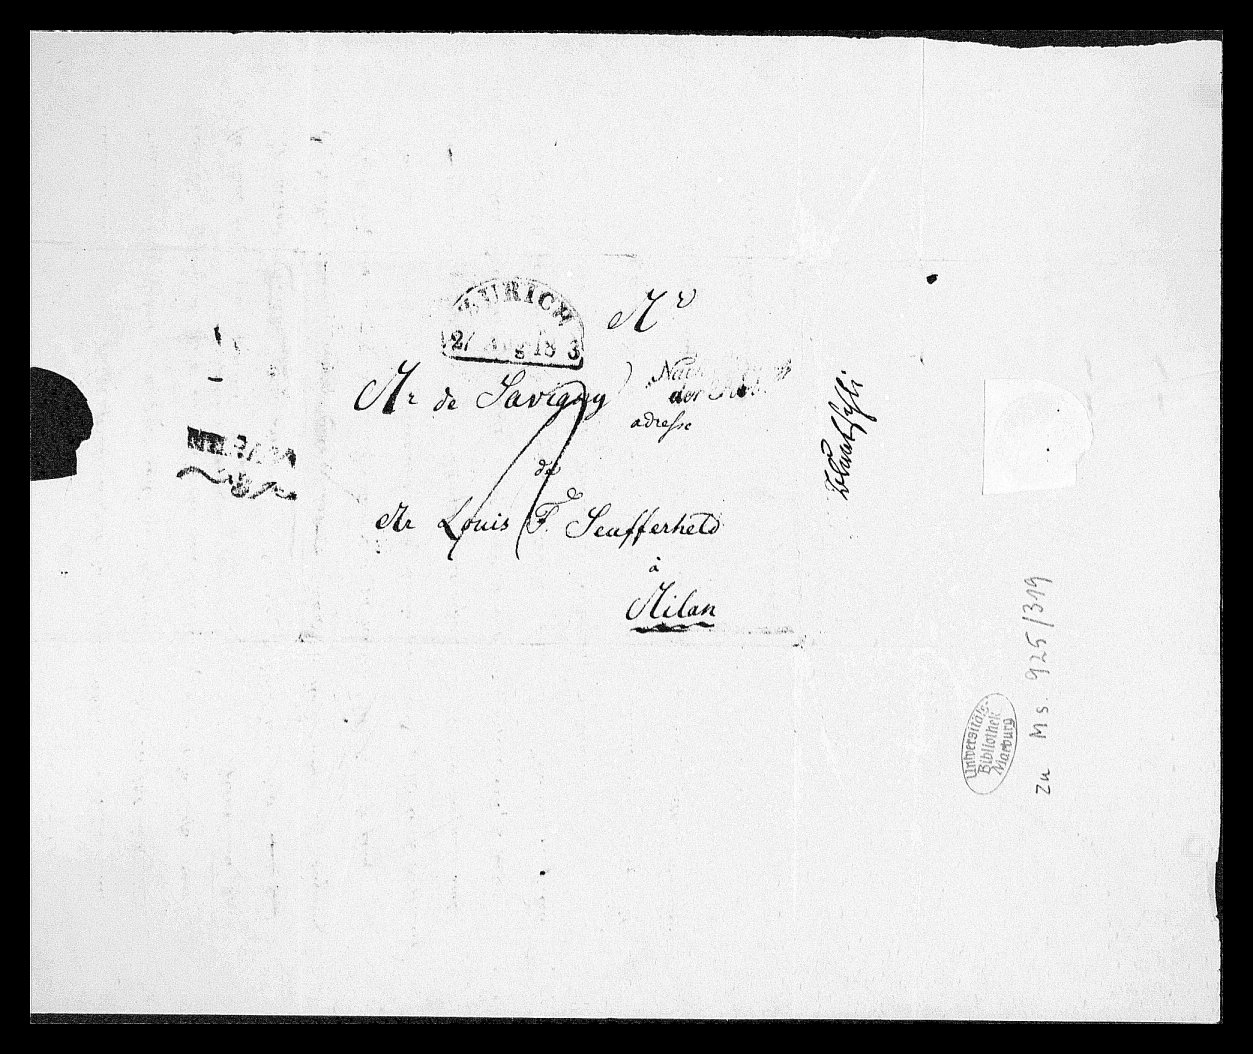 ZURICH
27 Aug 18 3
Mr
Mr de Savigny
der
adresse
de
Mr Louis F. Seufferheld
à
Milan
Bluntschli
zu Ms. 925/319
Universitäts-
Bibliothek
Marburg